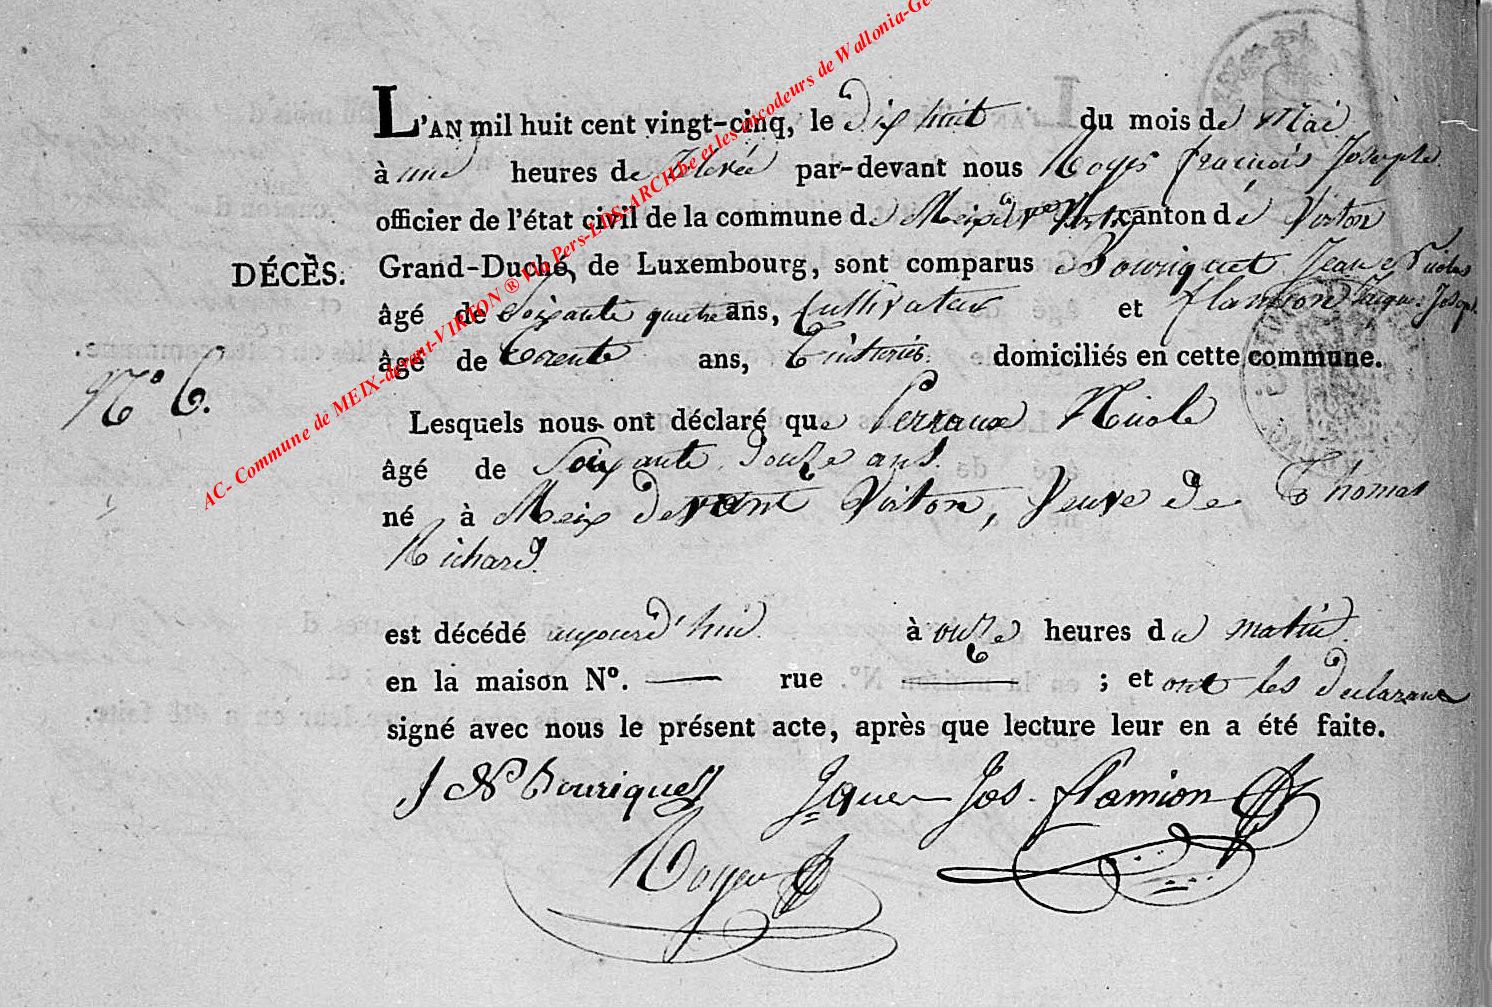 L'AN mil huit cent vingt-cinq, le dix huit du mois de Mai
à une heures de relevée par-devant nous françois Joseph
officier de l'état civil de la commune de Meix dt Virton canton de Virton
DÉCÈS. Grand-Duché, de Luxembourg, sont comparus Bouriquet Jean Nicolas
âgé de Soixante quatre ans, Cultivateur et flamion Jaque Joseph
âgé de trente ans, Teinturier domiciliés en cette commune.
N° 6.
Lesquels nous ont déclaré que Perraux Nicole
âgé de Soixante douze ans.
né à Meix devant Virton, Veuve de Thomas
Richard.
est décédé aujourd'hui à onze heures du matin.
en la maison N°. — rue — ; et ont les déclarans
signé avec nous le présent acte, après que lecture leur en a été faite.
J N Bouriquet Jques Jos. flamion
AC- Commune de MEIX-devant-VIRTON ® Via Pers-LDS-ARCH.be et les encodeurs de Wallonia-Ge